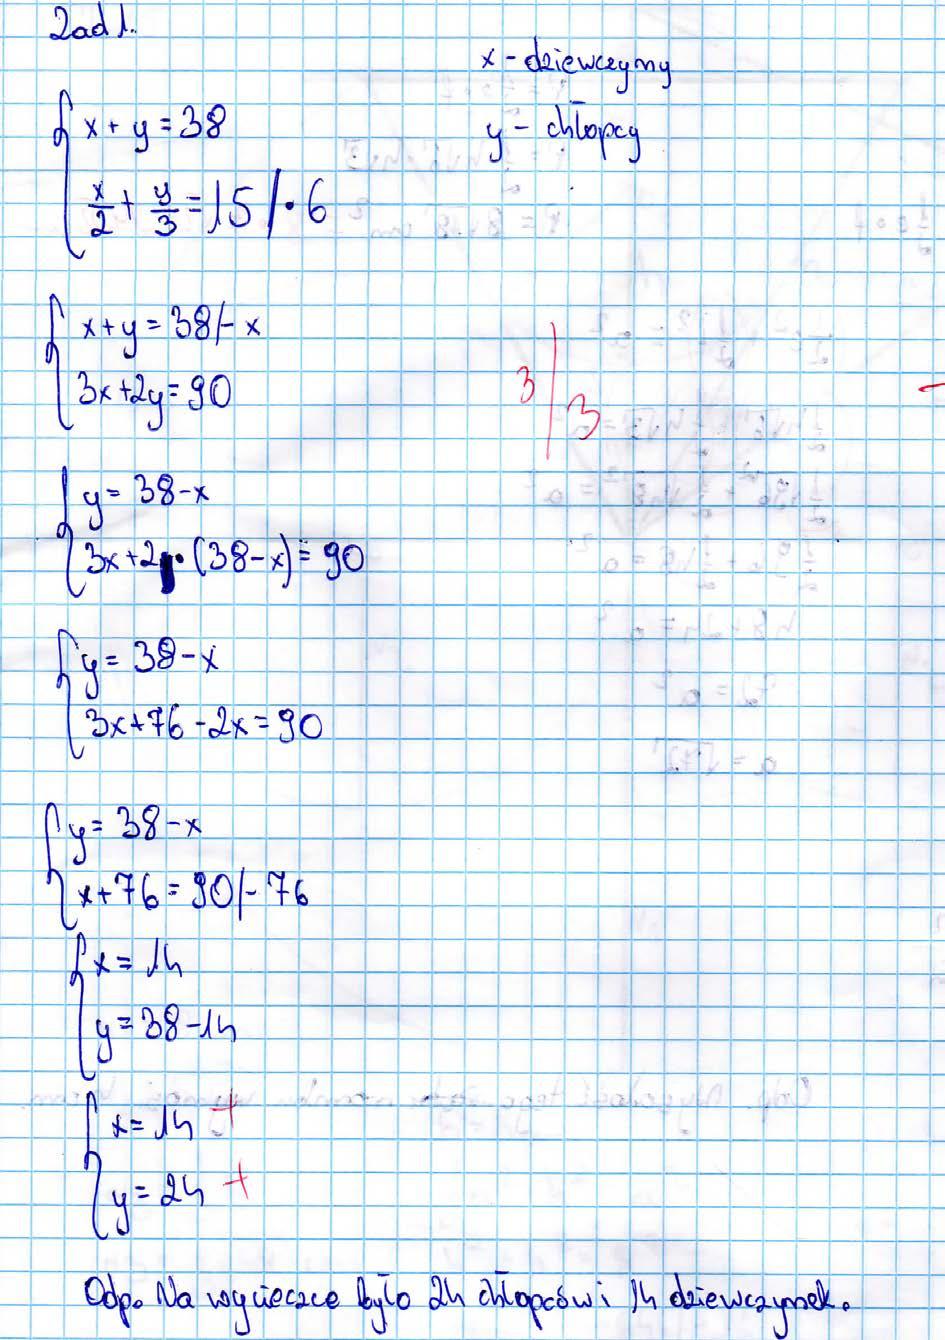 Zad 1.
x - dziewczyny
y - chłopcy
x + y = 38
x/2 + y/3 = 15 /· 6
x + y = 38 /- x
3x + 2y = 90
3/3
y = 38 - x
3x + 2 · (38 - x) = 90
y = 38 - x
3x + 76 - 2x = 90
y = 38 - x
x + 76 = 90 /- 76
x = 14
y = 38 - 14
x = 14 +
y = 24 +
Odp. Na wycieczce było 24 chłopców i 14 dziewczynek.